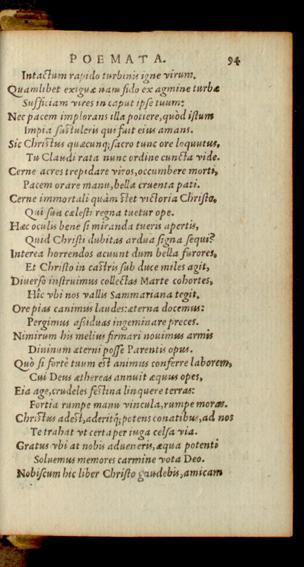 POEMATA. 94
Intactum rapido turbinis igne virum.
Quamlibet exiguæ nam fido ex agmine turbæ
Sufficiam vires in caput ipse tuum:
Nec pacem implorans illa potiere, quòd istum
Impia sustuleris qui fuit eius amans.
Sic Christus quæcunq; sacro tunc ore loquutus,
Tu Claudi rata nunc ordine cuncta vide.
Cerne acres trepidare viros, occumbere morti,
Pacem orare manu, bella cruenta pati.
Cerne immortali quàm stet victoria Christo,
Qui sua cælesti regna tuetur ope.
Hæc oculis bene si miranda tueris apertis,
Quid Christi dubitas ardua signa sequi?
Interea horrendos acuunt dum bella furores,
Et Christo in castris sub duce miles agit,
Diuerso instruimus collectas Marte cohortes,
Hîc vbi nos vallis Sammariana tegit.
Ore pias canimus laudes: æterna docemus:
Pergimus assiduas ingeminare preces.
Nimirum his melius firmari nouimus armis
Diuinum æterni posse Parentis opus.
Quò si fortè tuum est animus conferre laborem,
Cui Deus æthereas annuit æquus opes,
Eia age, crudeles festina linquere terras:
Fortia rumpe manu vincula, rumpe moras.
Christus adest, aderitq; potens conatibus, ad nos
Te trahat vt certa per iuga celsa via.
Gratus vbi at nobis adueneris, æqua potenti
Soluemus memores carmine vota Deo.
Nobiscum hic liber Christo gaudebis, amicam